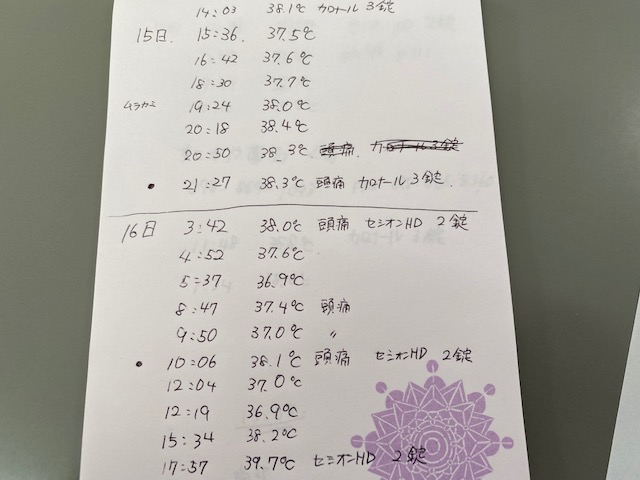 14:03 38.1℃ カロナール 3錠
15日. 15:36. 37.5℃
16:42 37.6℃
18:30 37.7℃
ムラカミ 19:24 38.0℃
20:18 38.4℃
20:50 38.3℃ 頭痛. カロナール3錠
• 21:27 38.3℃ 頭痛 カロナール 3錠.
16日 3:42 38.0℃ 頭痛 セシオンHD 2錠
4:52 37.6℃
5:37 36.9℃
8:47 37.4℃ 頭痛
9:50 37.0℃ 〃
• 10:06 38.1℃ 頭痛 セミオンHD 2錠
12:04 37.0℃
12:19 36.9℃
15:34 38.2℃
17:57 39.7℃ セミオンHD 2錠